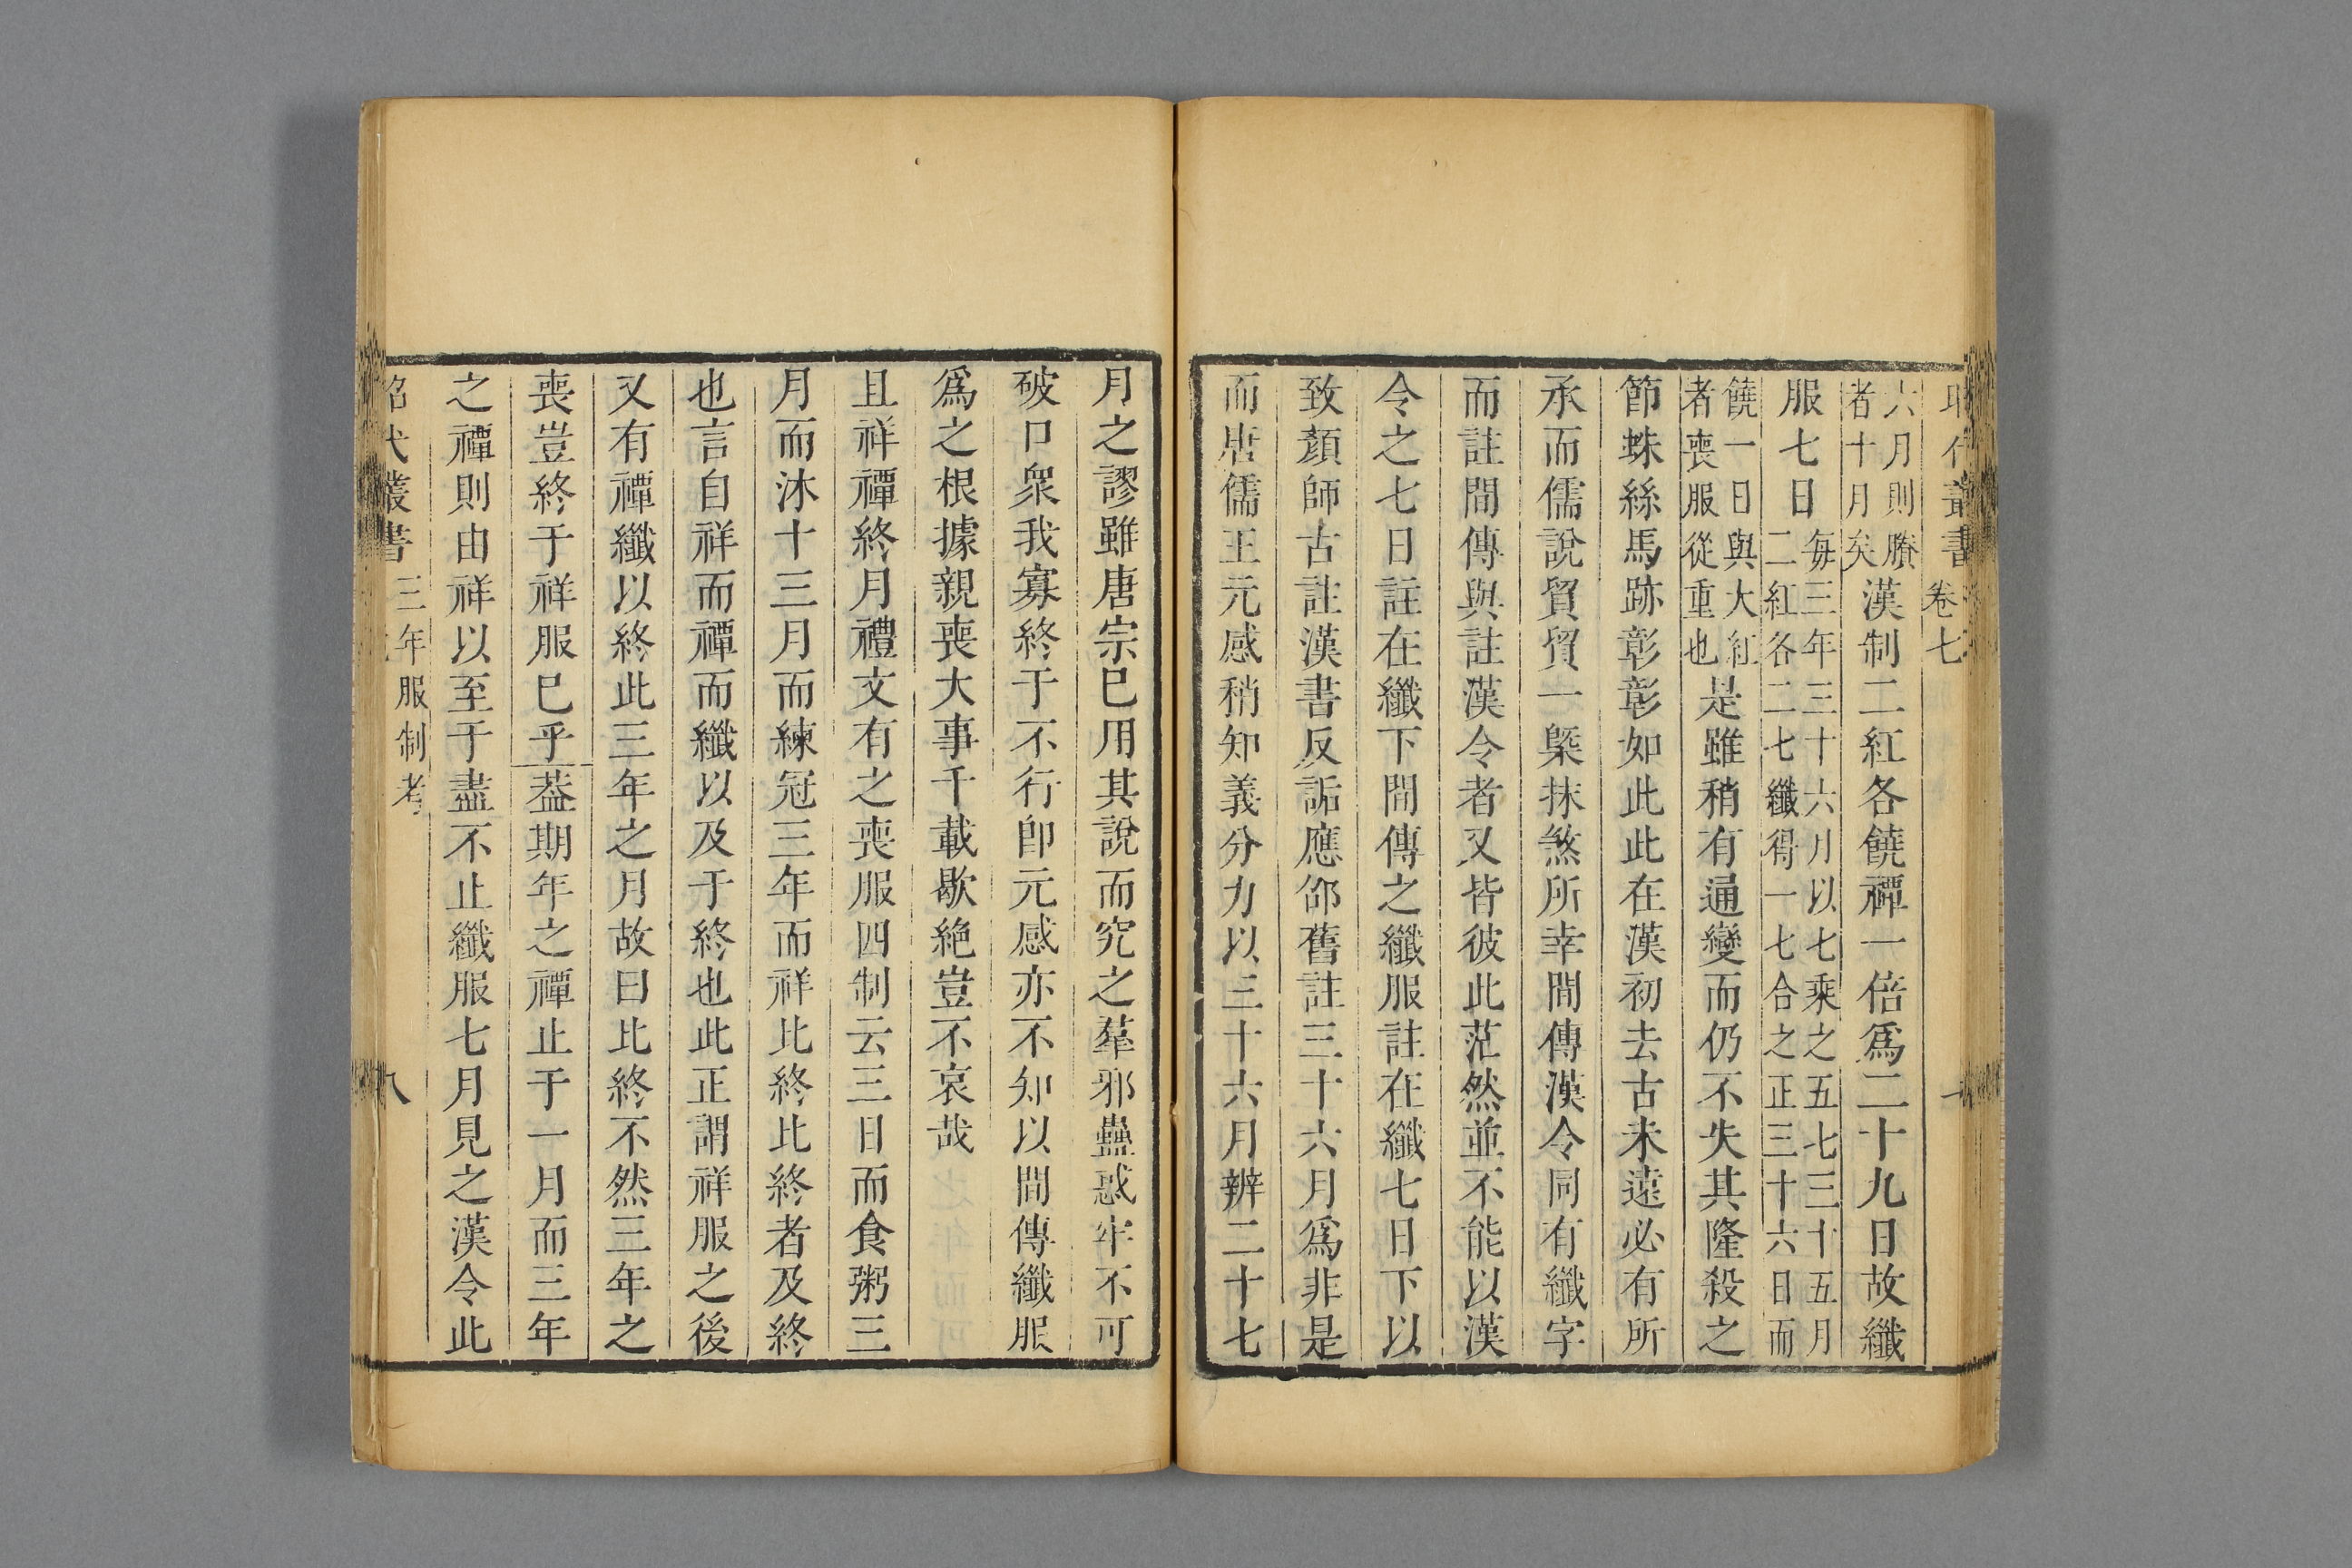 昭代叢書 卷七
六月則賸者十月矣漢制二紅各饒禫一倍爲二十九日故纖
服七日每三年三十六月以七乘之五七三十五月二紅各二七纖得一七合之正三十六日而
饒一日與大紅者喪服從重也是雖稍有通變而仍不失其隆殺之
節蛛絲馬跡彰彰如此此在漢初去古未遠必有所
承而儒說貿貿一槩抹煞所幸間傳漢令同有纖字
而註間傳與註漢令者又皆彼此茫然並不能以漢
令之七日註在纖下間傳之纖服註在纖七日下以
致顏師古註漢書反詬應邵舊註三十六月爲非是
而唐儒王元感稍知義分力以三十六月辨二十七
月之謬雖唐宗已用其說而究之羣邪蠱惑牢不可
破口衆我寡終于不行卽元感亦不知以間傳纖服
爲之根據親喪大事千載歇絶豈不哀哉
且祥禫終月禮文有之喪服四制云三日而食粥三
月而沐十三月而練冠三年而祥比終比終者及終
也言自祥而禫而纖以及于終也此正謂祥服之後
又有禫纖以終此三年之月故曰比終不然三年之
喪豈終于祥服已乎葢期年之禫止于一月而三年
之禫則由祥以至于盡不止纖服七月見之漢令此
昭代叢書 三年服制考 八